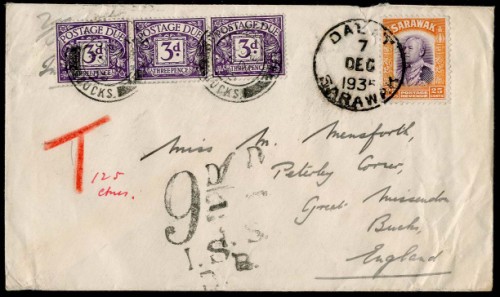 POSTAGE DUE POSTAGE DUE POSTAGE DUE
3d. 3d. 3d.
THREE PENCE
BUCKS. BUCKS.
DALAT
7
DEC
193
SARAWAK
SARAWAK
25
T
125
ctmes.
9D
I.S.B.
Miss M. Mensforth,
Peterley Corner,
Great Missenden
Bucks,
England